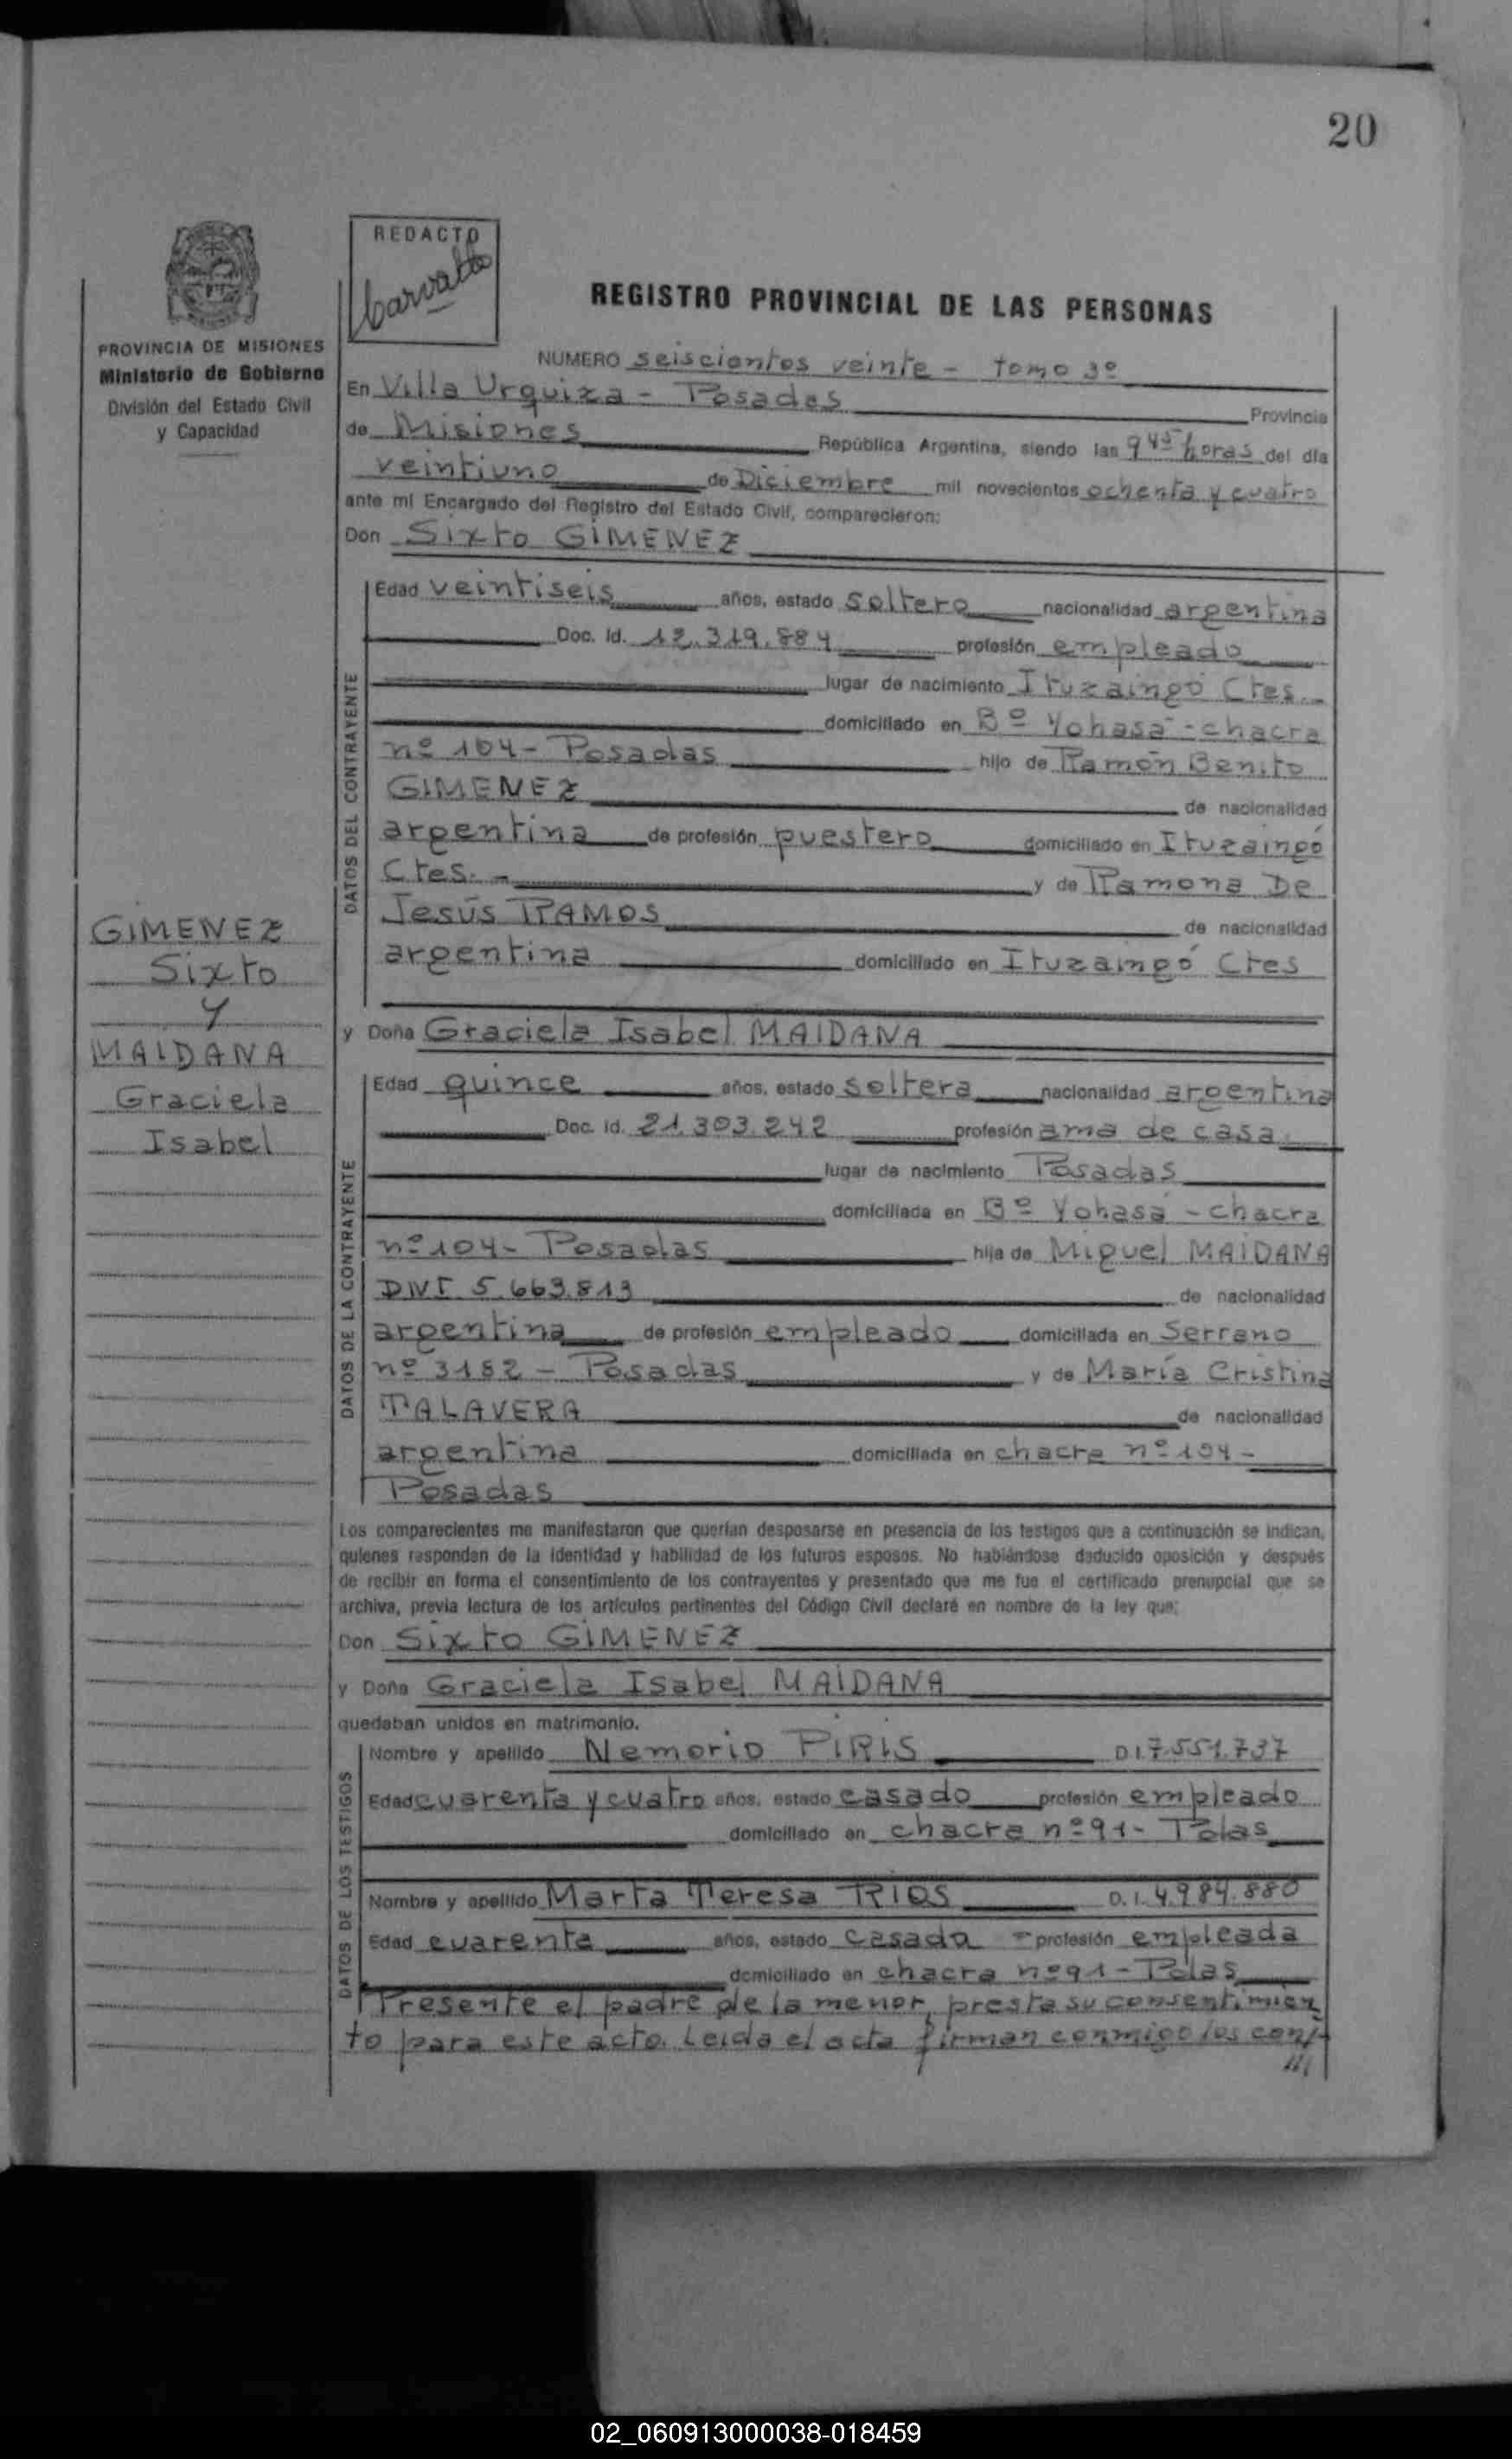 20
REDACTO
Carvallo
PROVINCIA DE MISIONES
Ministerio de Gobierno
División del Estado Civil
y Capacidad
REGISTRO PROVINCIAL DE LAS PERSONAS
NUMERO seiscientos veinte - tomo 3º
En Villa Urquiza - Posadas Provincia
de Misiones República Argentina, siendo las 9 45 horas del día
veintiuno de Diciembre mil novecientos ochenta y cuatro
ante mí Encargado del Registro del Estado Civil, comparecieron:
Don Sixto GIMENEZ
DATOS DEL CONTRAYENTE
Edad veintiseis años, estado soltero nacionalidad argentina
Doc. Id. 12.319.884 profesión empleado
lugar de nacimiento Ituzaingó Ctes.
domiciliado en Bº Yohasá - chacra
nº 104 - Posadas hijo de Ramón Benito
GIMENEZ de nacionalidad
argentina de profesión puestero domiciliado en Ituzaingó
Ctes. - y de Ramona De
Jesús RAMOS de nacionalidad
argentina domiciliado en Ituzaingó Ctes
GIMENEZ
Sixto
Y
MAIDANA
Graciela
Isabel
y Doña Graciela Isabel MAIDANA
DATOS DE LA CONTRAYENTE
Edad quince años, estado soltera nacionalidad argentina
Doc. Id. 21.303.242 profesión ama de casa
lugar de nacimiento Posadas
domiciliada en Bº Yohasá - chacra
nº 104 - Posadas hija de Miguel MAIDANA
DNI 5.663.813 de nacionalidad
argentina de profesión empleado domiciliada en Serrano
nº 3182 - Posadas y de María Cristina
TALAVERA de nacionalidad
argentina domiciliada en chacra nº 104 -
Posadas
Los comparecientes me manifestaron que querían desposarse en presencia de los testigos que a continuación se indican,
quienes responden de la identidad y habilidad de los futuros esposos. No habiéndose deducido oposición y después
de recibir en forma el consentimiento de los contrayentes y presentado que me fue el certificado prenupcial que se
archiva, previa lectura de los artículos pertinentes del Código Civil declaré en nombre de la ley que:
Don Sixto GIMENEZ
y Doña Graciela Isabel MAIDANA
quedaban unidos en matrimonio.
DATOS DE LOS TESTIGOS
Nombre y apellido Nemorio PIRIS D.I. 7.551.737
Edad cuarenta y cuatro años, estado casado profesión empleado
domiciliado en chacra nº 91 - Pdas
Nombre y apellido Marta Teresa RIOS D.I. 4.984.880
Edad cuarenta años, estado casada - profesión empleada
domiciliado en chacra nº 91 - Pdas
Presente el padre de la menor, presta su consentimien
to para este acto. Leida el acta firman conmigo los cont-
///
02_060913000038-018459